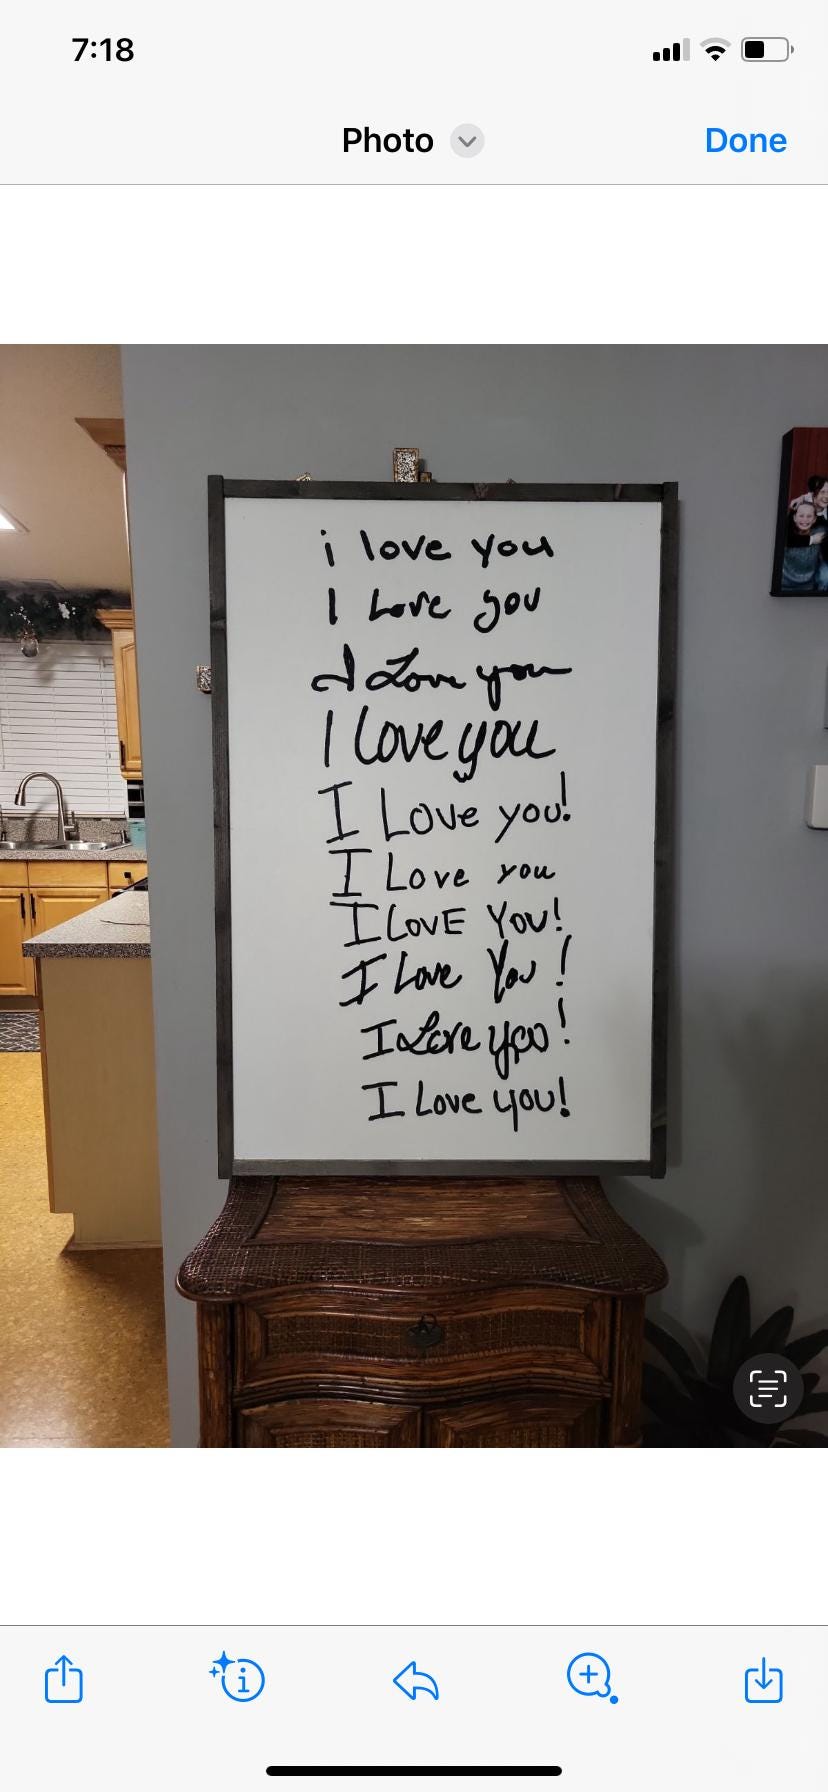 7:18
Photo
Done
i love you
I Love you
I Love you
I love you
I Love you!
I Love you
I LovE You!
I Love You!
I Love you!
I Love you!